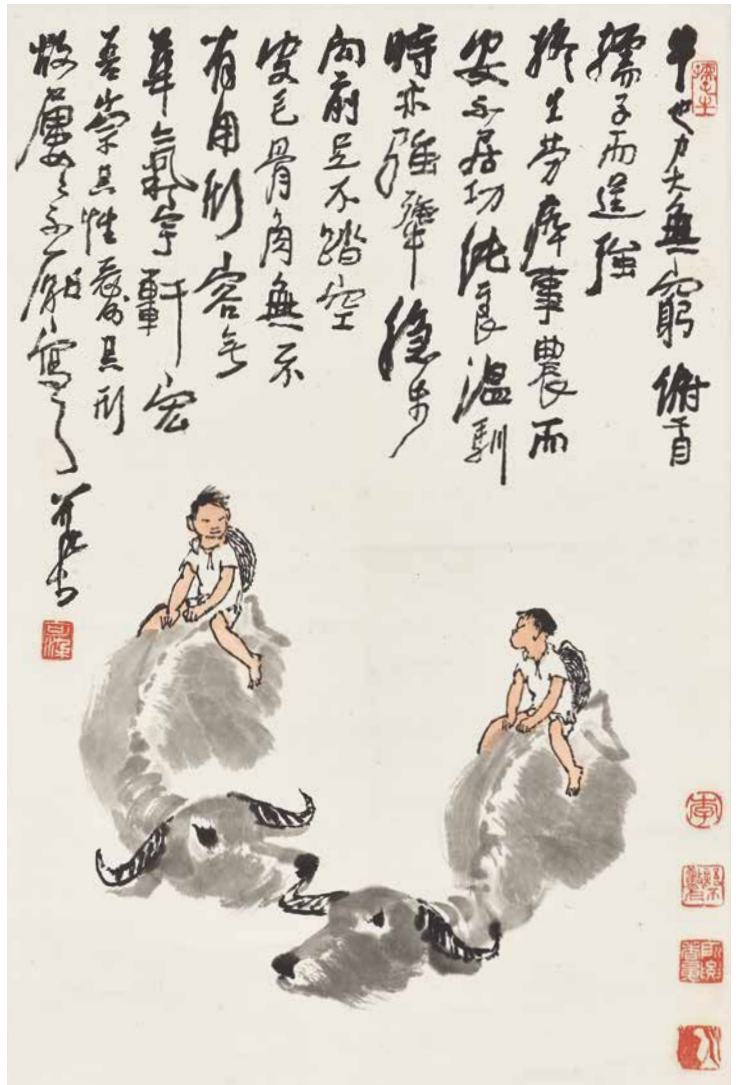 牛也力大無窮俯首
孺子而逞強
終生勞瘁事農而
安不居功純良溫馴
時亦強犟穩步
向前足不踏空
皮毛骨角無不
有用形容无
華氣宇軒宏
吾崇其性愛其形
故屢々不厭寫之
可染
孺子牛
可染
李